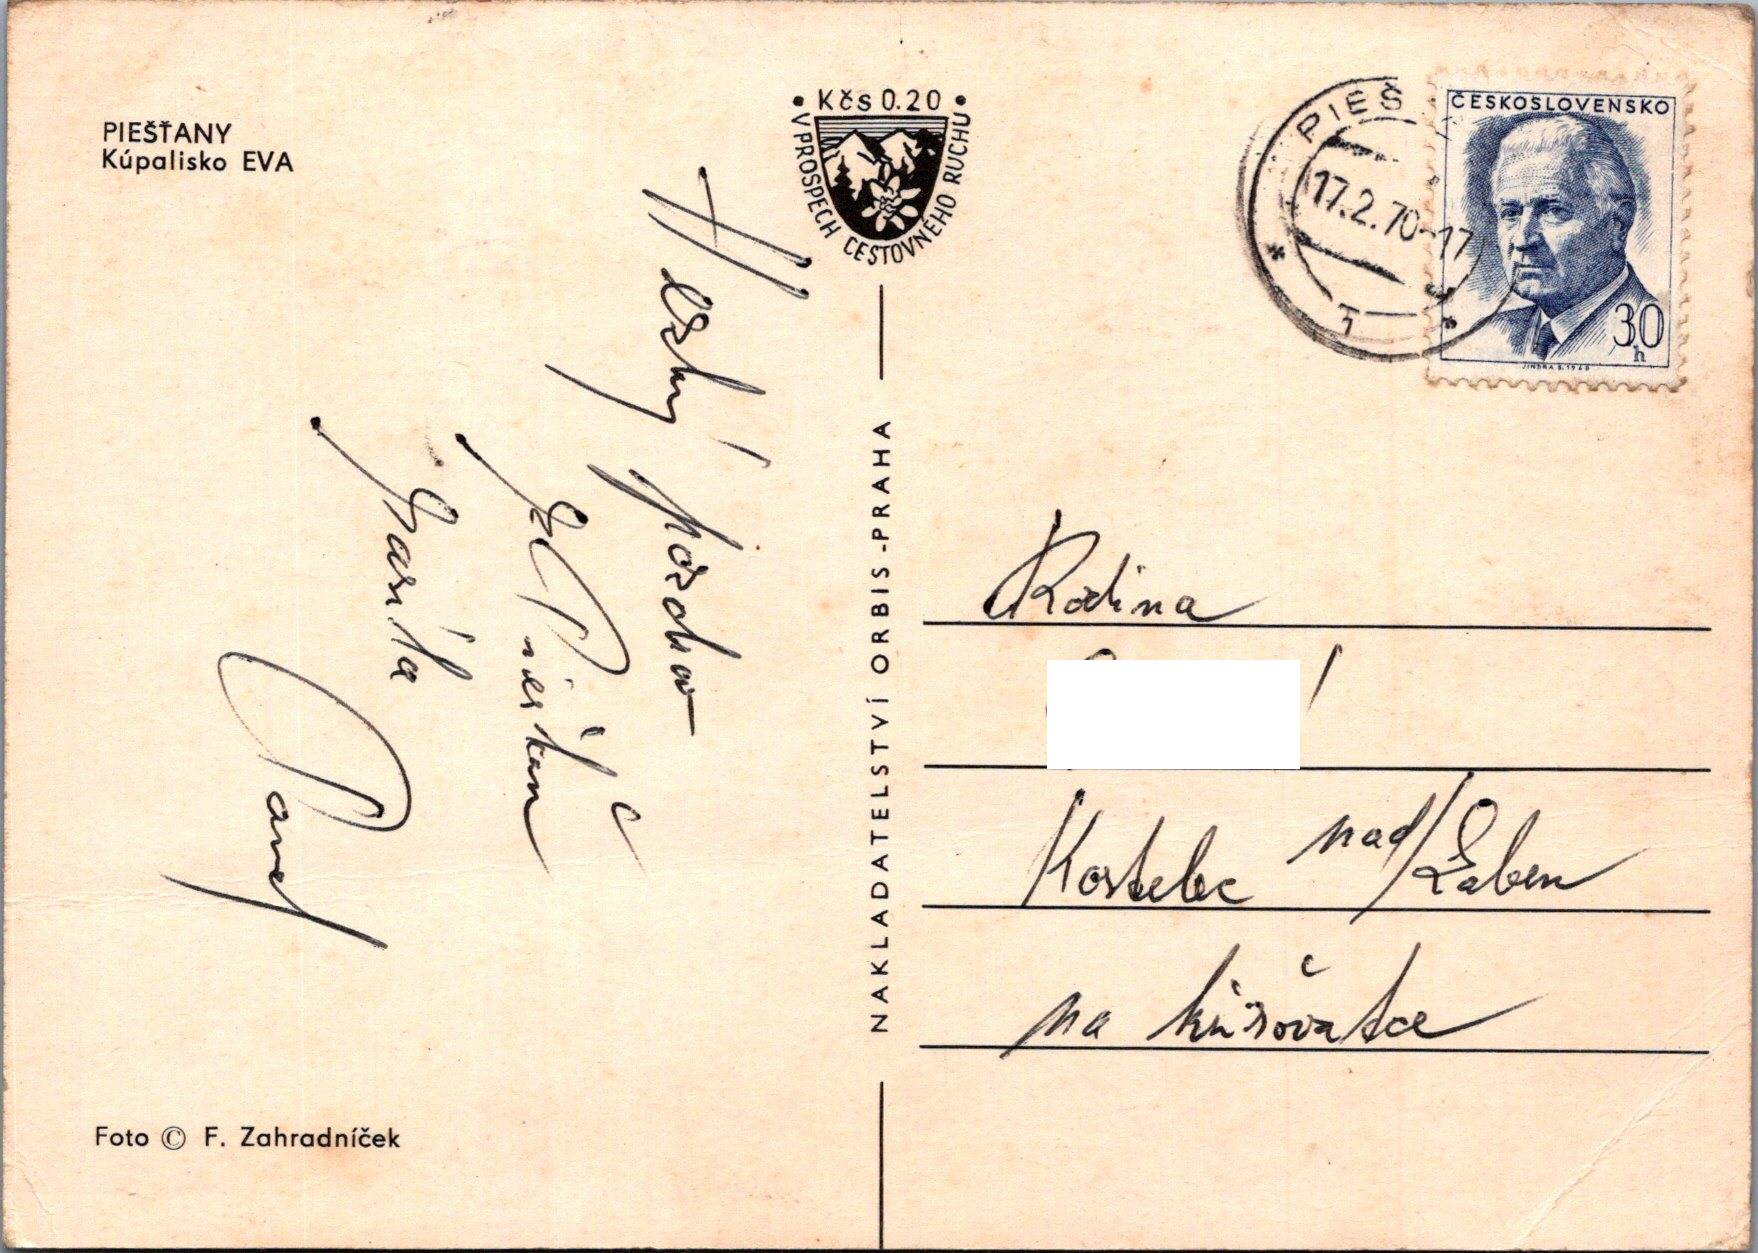 PIEŠŤANY
Kúpalisko EVA
Kčs 0.20
V PROSPECH CESTOVNÉHO RUCHU
PIEŠ
17.2.70-17
ČESKOSLOVENSKO
30
h
JINDRA S. 1968
Hezký pozdrav
z Piešťan
Pavel
NAKLADATELSTVÍ ORBIS-PRAHA
Rodina
Kostelec nad/Laben
na křižovatce
Foto © F. Zahradníček